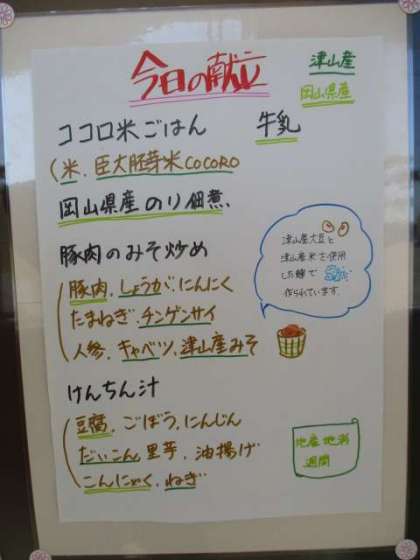 今日の献立
津山産
岡山県産
ココロ米ごはん 牛乳
(米、臣大胚芽米COCORO
岡山県産のり佃煮
豚肉のみそ炒め
豚肉、しょうが、にんにく
たまねぎ、チンゲンサイ
人参、キャベツ、津山産みそ
津山産大豆と
津山産米を使用
した麹で
作られています。
けんちん汁
豆腐、ごぼう、にんじん
だいこん、里芋、油揚げ
こんにゃく、ねぎ
地産地消
週間